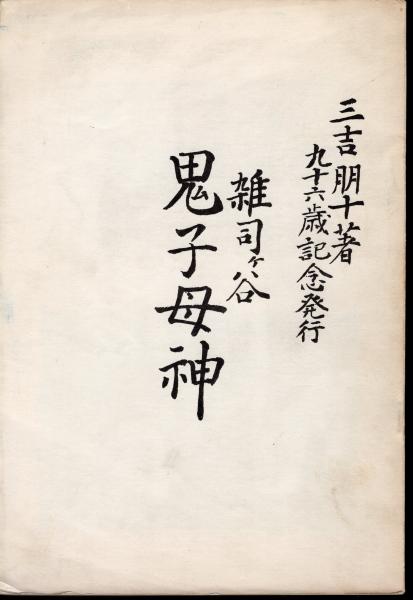 三吉朋十著
九十六歳記念発行
雑司ヶ谷
鬼子母神